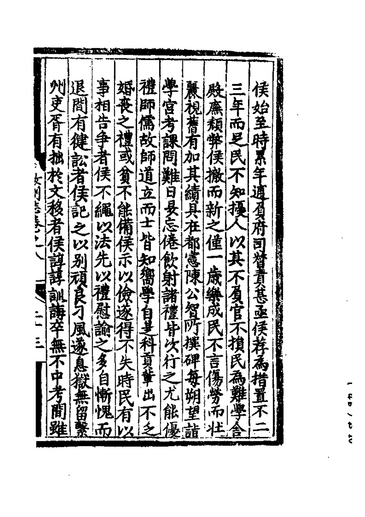 侯始至時累年逋負府司督責甚亟侯荐為措置不二
三年而足民不知擾人以其不負官不損民為難學舍
殿廡頽弊侯撤而新之僅一歲樂成民不言傷勞而壯
麗視舊有加其績具在都憲陳公智所撰碑每朔望詣
學宫考課問難日晏忘倦飲射諸禮皆次行之尤能優
禮師儒故師道立而士皆知嚮學自是科貢輩出不乏
婚丧之禮或貧不能備侯示以儉遂得不失時民有以
事相告爭者侯不繩以法先以禮慰諭之多自慚愧而
退間有健訟者侯記之以别頑良刁風遂息獄無留繫
州吏胥有拙於文移者侯諄諄訓誨卒無不中考閲雖
二十三